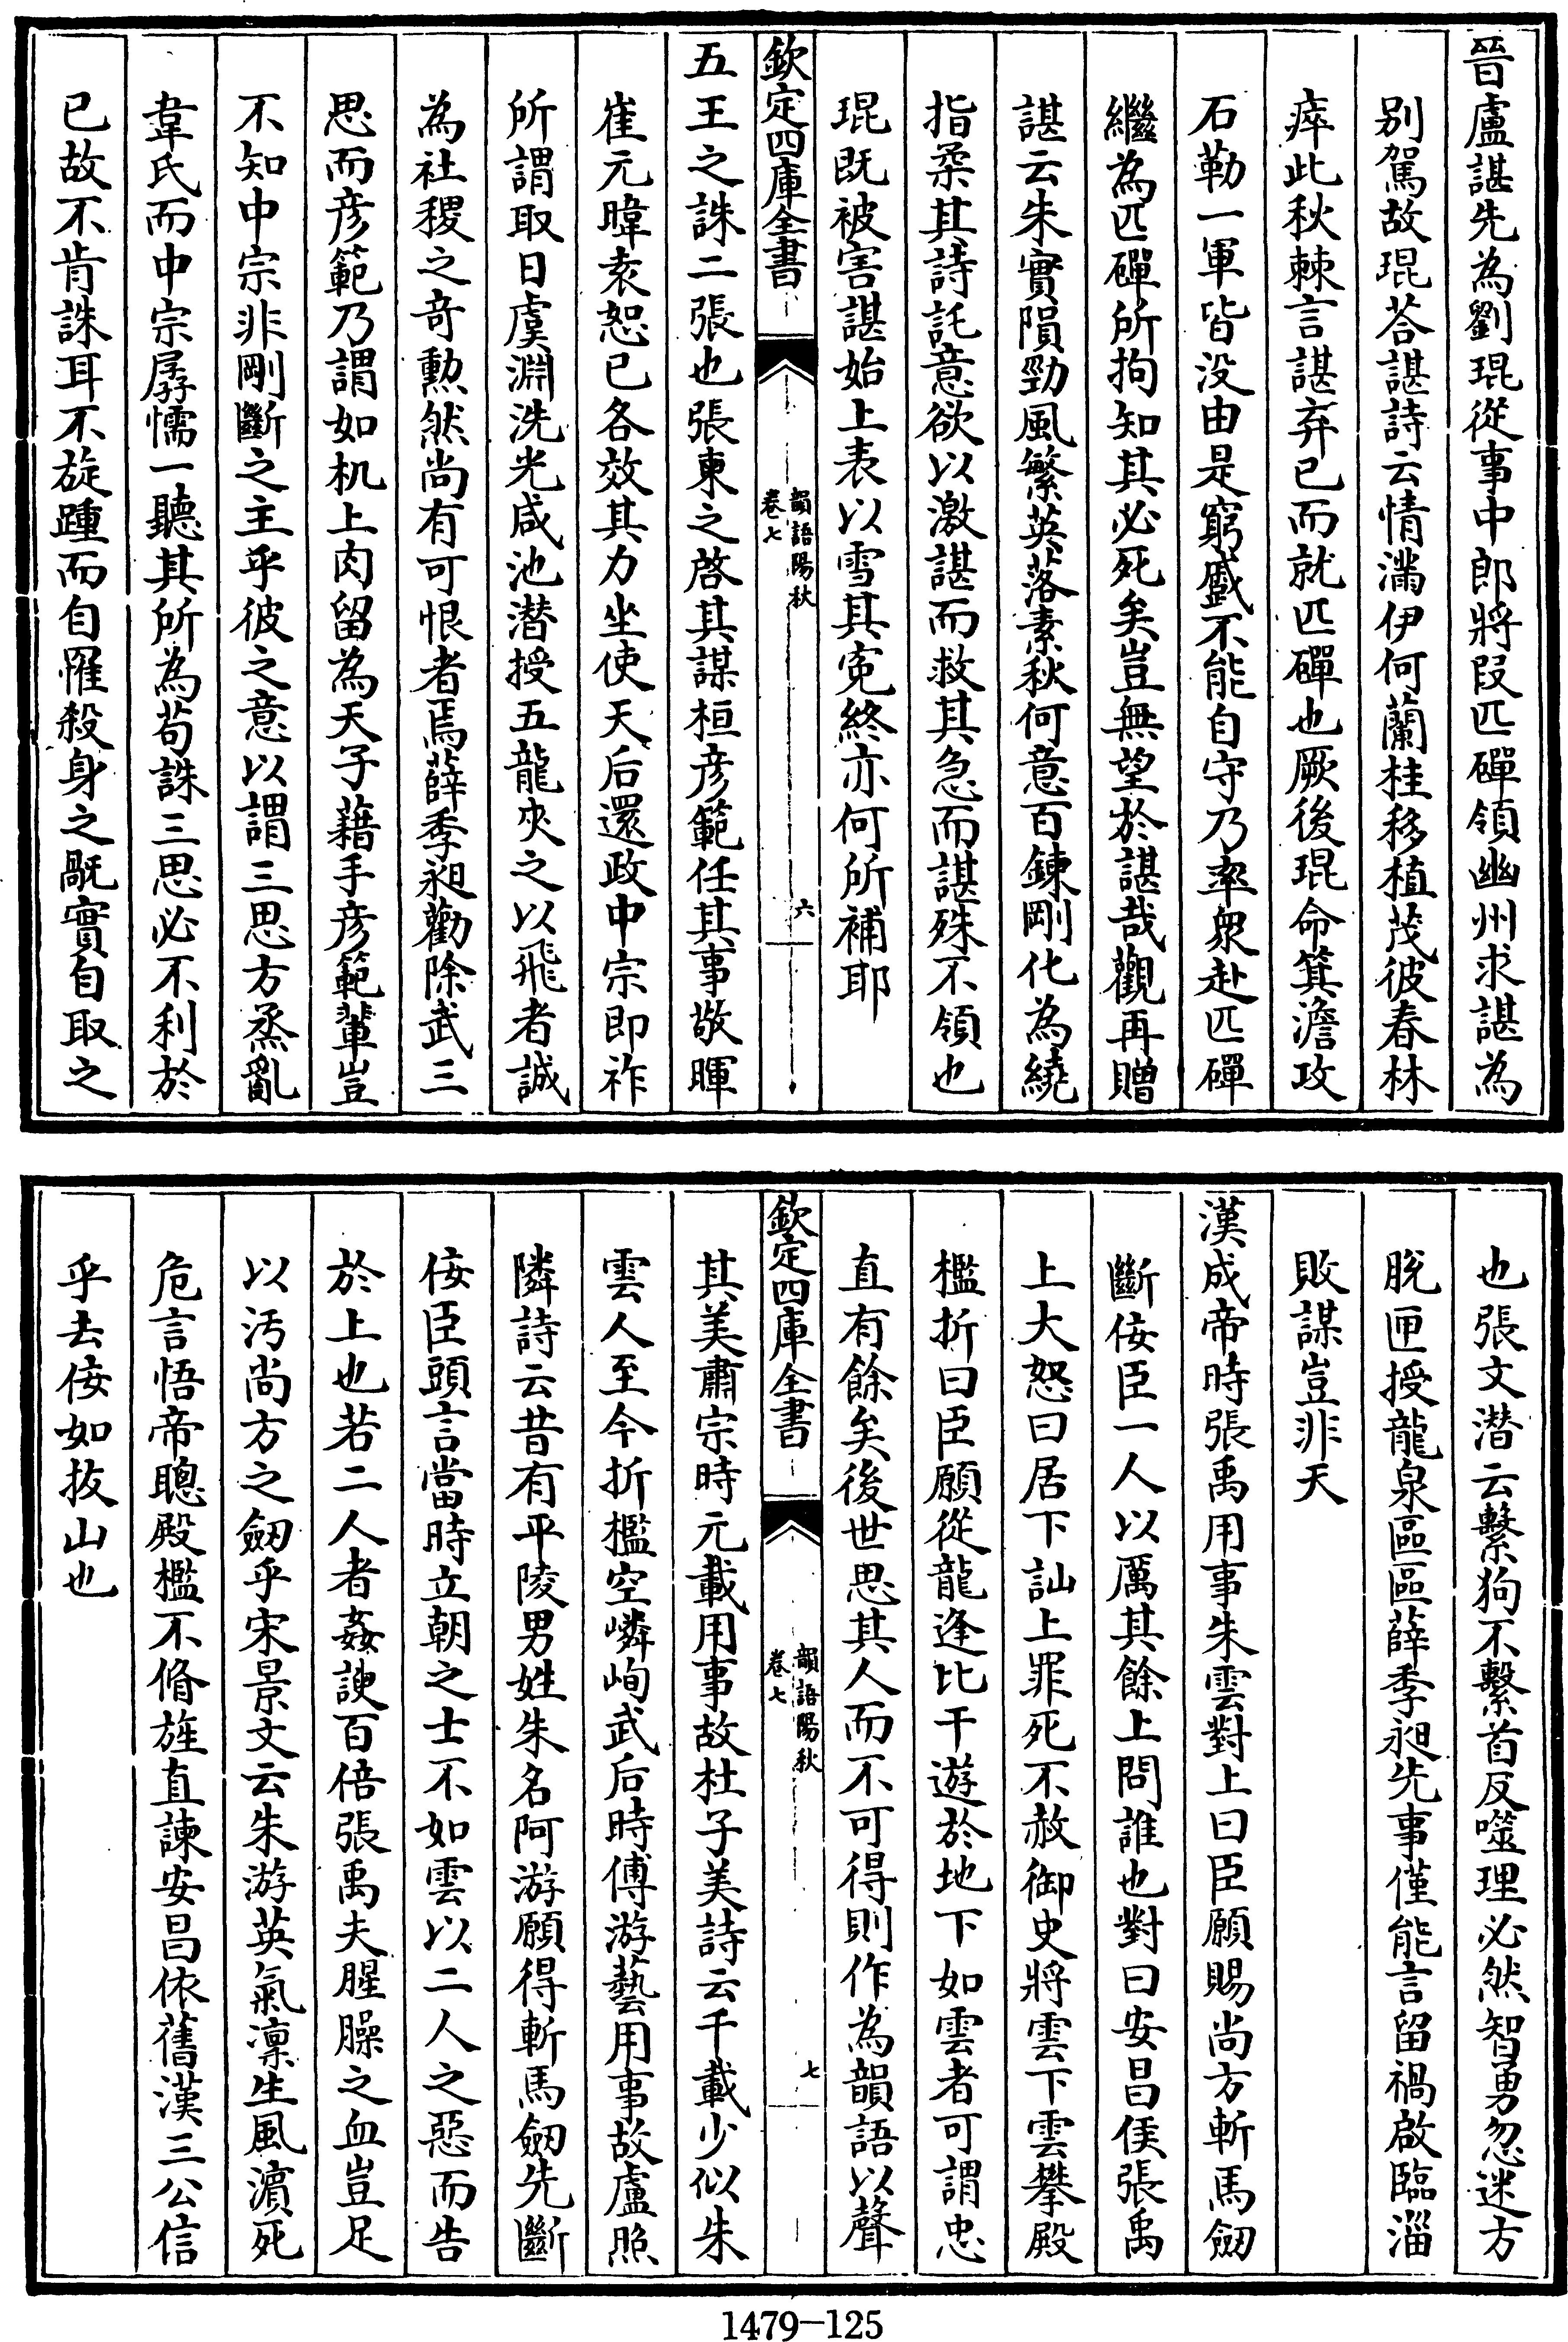 晉盧諶先為劉琨從事中郎將段匹磾領幽州求諶為
别駕故琨荅諶詩云情滿伊何蘭桂移植茂彼春林
瘁此秋棘言諶弃已而就匹磾也厥後琨命箕澹攻
石勒一軍皆没由是窮蹙不能自守乃率衆赴匹磾
繼為匹磾所拘知其必死矣豈無望於諶哉觀再贈
諶云朱實隕勁風繁英落素秋何意百鍊剛化為繞
指柔其詩託意欲以激諶而救其急而諶殊不領也
琨既被害諶始上表以雪其寃終亦何所補耶
欽定四庫全書
韻語陽秋
卷七
六
五王之誅二張也張東之啓其謀桓彦範任其事敬暉
崔元暐袁恕已各效其力坐使天后還政中宗即祚
所謂取日虞淵洗光咸池潜授五龍夾之以飛者誠
為社稷之奇勲然尚有可恨者焉薛季昶勸除武三
思而彦範乃謂如机上肉留為天子藉手彦範輩豈
不知中宗非剛斷之主乎彼之意以謂三思方烝亂
韋氏而中宗孱懦一聽其所為苟誅三思必不利於
已故不肯誅耳不旋踵而自罹殺身之戮實自取之
也張文潜云繫狗不繫首反噬理必然智勇忽迷方
脱匣授龍泉區區薛季昶先事僅能言留禍啟臨淄
敗謀豈非天
漢成帝時張禹用事朱雲對上曰臣願賜尚方斬馬劒
斷佞臣一人以厲其餘上問誰也對曰安昌侯張禹
上大怒曰居下訕上罪死不赦御史將雲下雲攀殿
檻折曰臣願從龍逢比干遊於地下如雲者可謂忠
直有餘矣後世思其人而不可得則作為韻語以聲
欽定四庫全書
韻語陽秋
卷七
七
其美肅宗時元載用事故杜子美詩云千載少似朱
雲人至今折檻空嶙峋武后時傅游藝用事故盧照
隣詩云昔有平陵男姓朱名阿游願得斬馬劒先斷
佞臣頭言當時立朝之士不如雲以二人之惡而告
於上也若二人者姦諛百倍張禹夫腥臊之血豈足
以汚尚方之劒乎宋景文云朱游英氣凛生風濵死
危言悟帝聰殿檻不脩旌直諫安昌依舊漢三公信
乎去佞如拔山也
1479-125